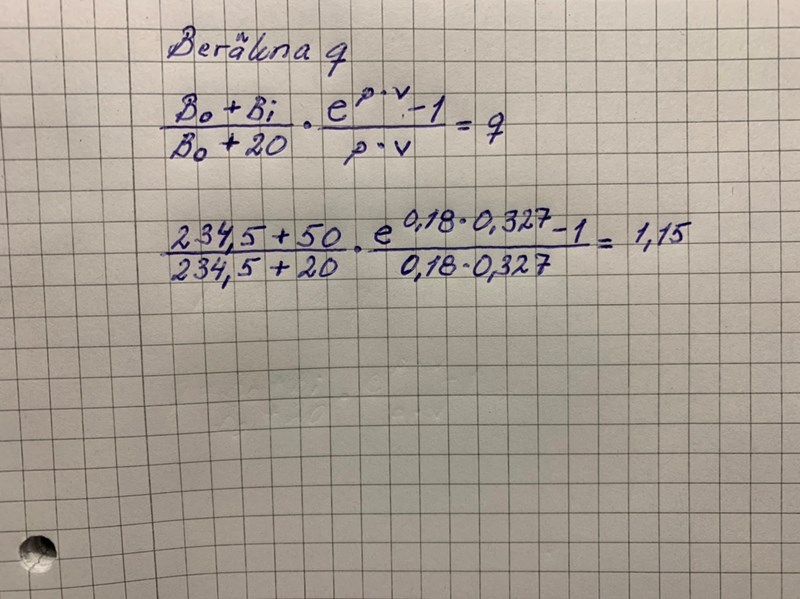 Beräkna q
B₀ + Bi / B₀ + 20 · e^(p·v) - 1 / p·v = q
234,5 + 50 / 234,5 + 20 · e^(0,18·0,327) - 1 / 0,18·0,327 = 1,15